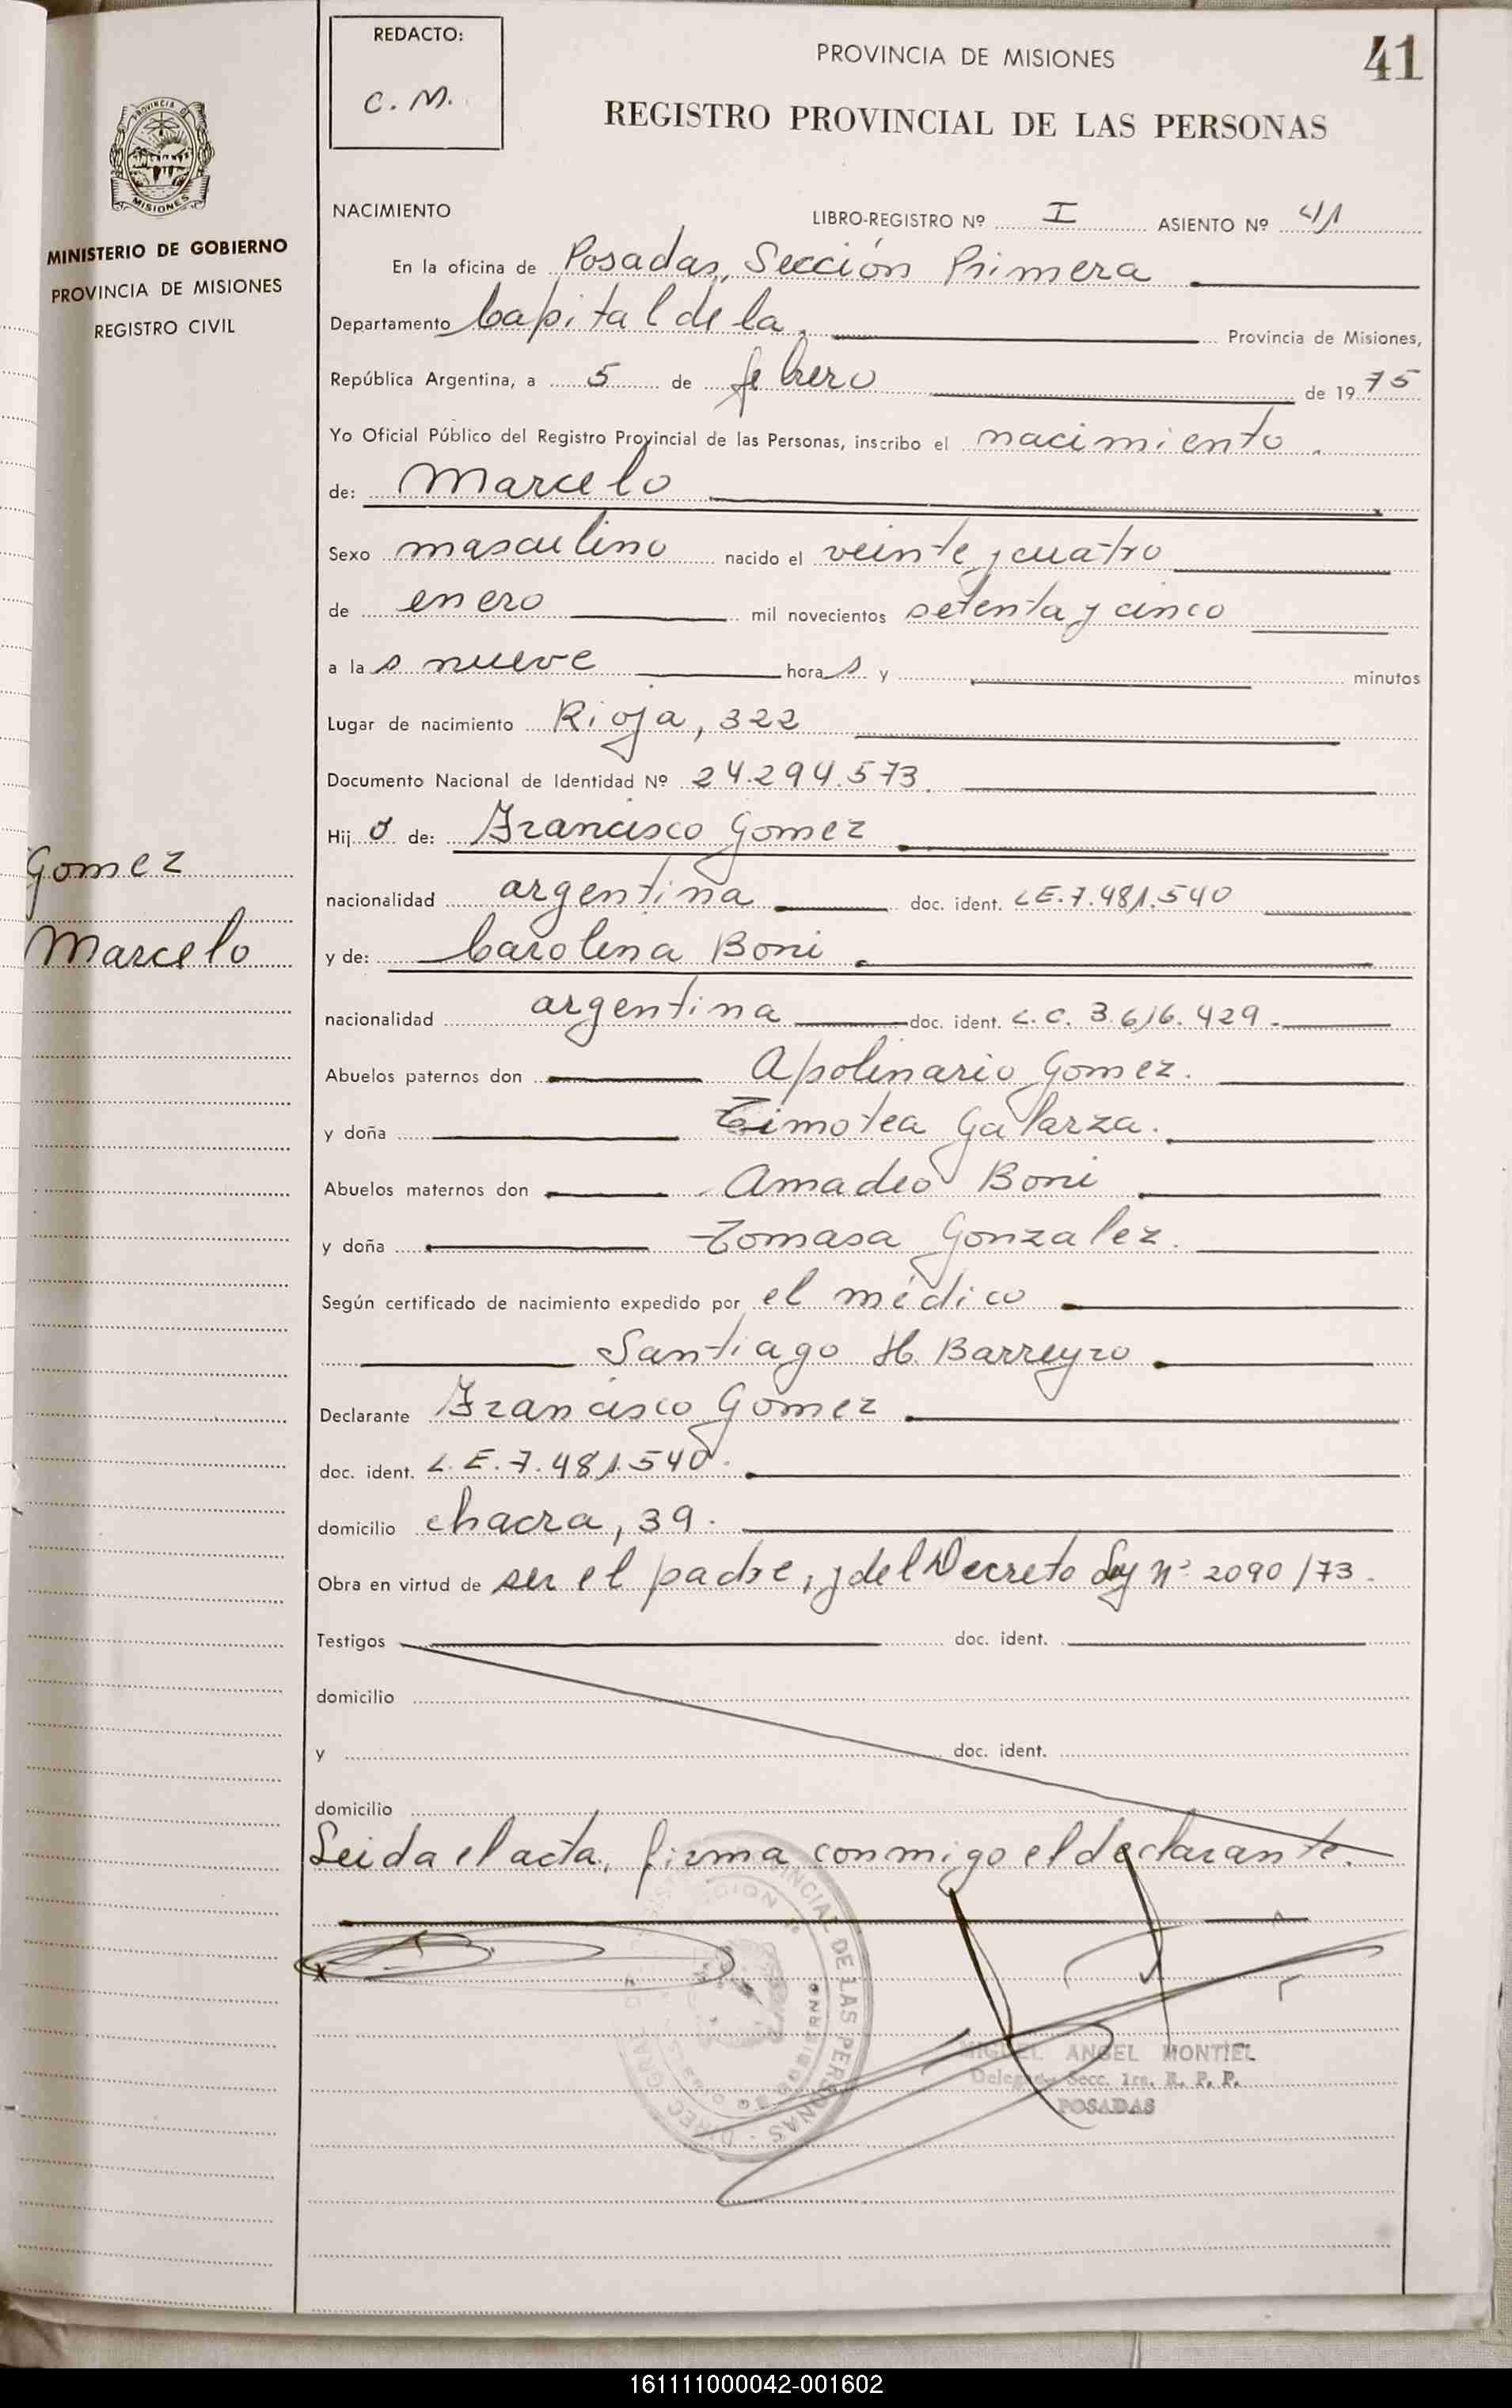 REDACTO:
C. M.
PROVINCIA DE MISIONES
41
REGISTRO PROVINCIAL DE LAS PERSONAS
PROVINCIA DE
MISIONES
MINISTERIO DE GOBIERNO
PROVINCIA DE MISIONES
REGISTRO CIVIL
NACIMIENTO
LIBRO-REGISTRO Nº I ASIENTO Nº 41
En la oficina de Posadas, Sección Primera
Departamento Capital de la Provincia de Misiones,
República Argentina, a 5 de febrero de 1975
Yo Oficial Público del Registro Provincial de las Personas, inscribo el nacimiento
de: Marcelo
Sexo masculino nacido el veinte y cuatro
de enero mil novecientos setenta y cinco
a las nueve horas y minutos
Lugar de nacimiento Rioja, 322
Documento Nacional de Identidad Nº 24.294.573
Hijo de: Francisco Gomez
nacionalidad argentina doc. ident. L.E. 7.481.540
Gomez
Marcelo
y de: Carolina Boni
nacionalidad argentina doc. ident. L.C. 3.616.429.
Abuelos paternos don Apolinario Gomez.
y doña Timotea Galarza.
Abuelos maternos don Amadeo Boni
y doña Tomasa Gonzalez.
Según certificado de nacimiento expedido por el médico
Santiago H. Barreyro
Declarante Francisco Gomez
doc. ident. L.E. 7.481.540.
domicilio chacra, 39.
Obra en virtud de ser el padre, y del Decreto Ley Nº 2090/73.
Testigos doc. ident.
domicilio
y doc. ident.
domicilio
Leida el acta, firma conmigo el declarante.
MIGUEL ANGEL MONTIEL
Delegado Secc. 1ra. R. P. P.
POSADAS
161111000042-001602